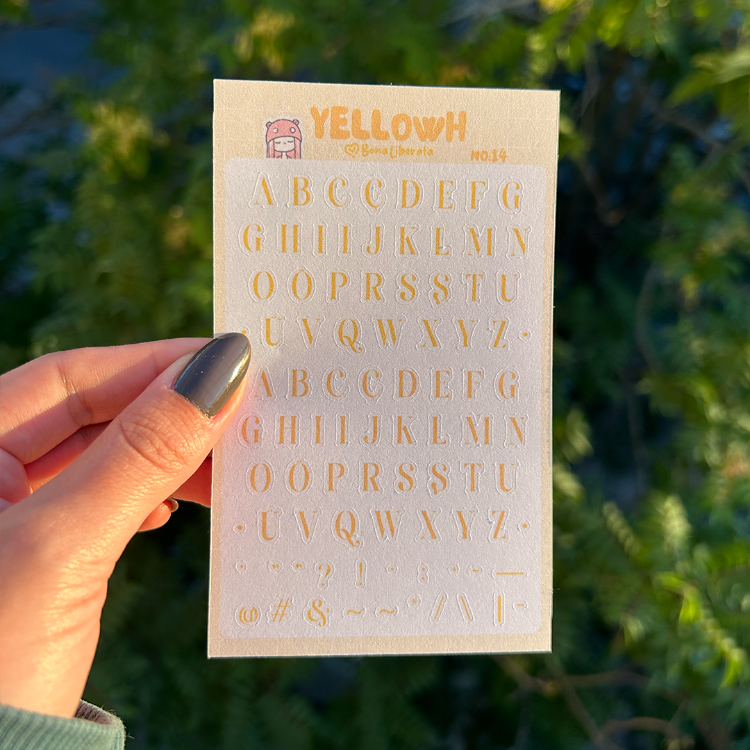 YELLOWH
Bona Liberata
NO:14
A B C Ç D E F G
Ğ H I İ J K L M N
O Ö P R S Ş T U
· Ü V Q W X Y Z ·
A B C Ç D E F G
Ğ H I İ J K L M N
O Ö P R S Ş T U
· Ü V Q W X Y Z ·
? ! : —
# & ~ ~ / \ | -